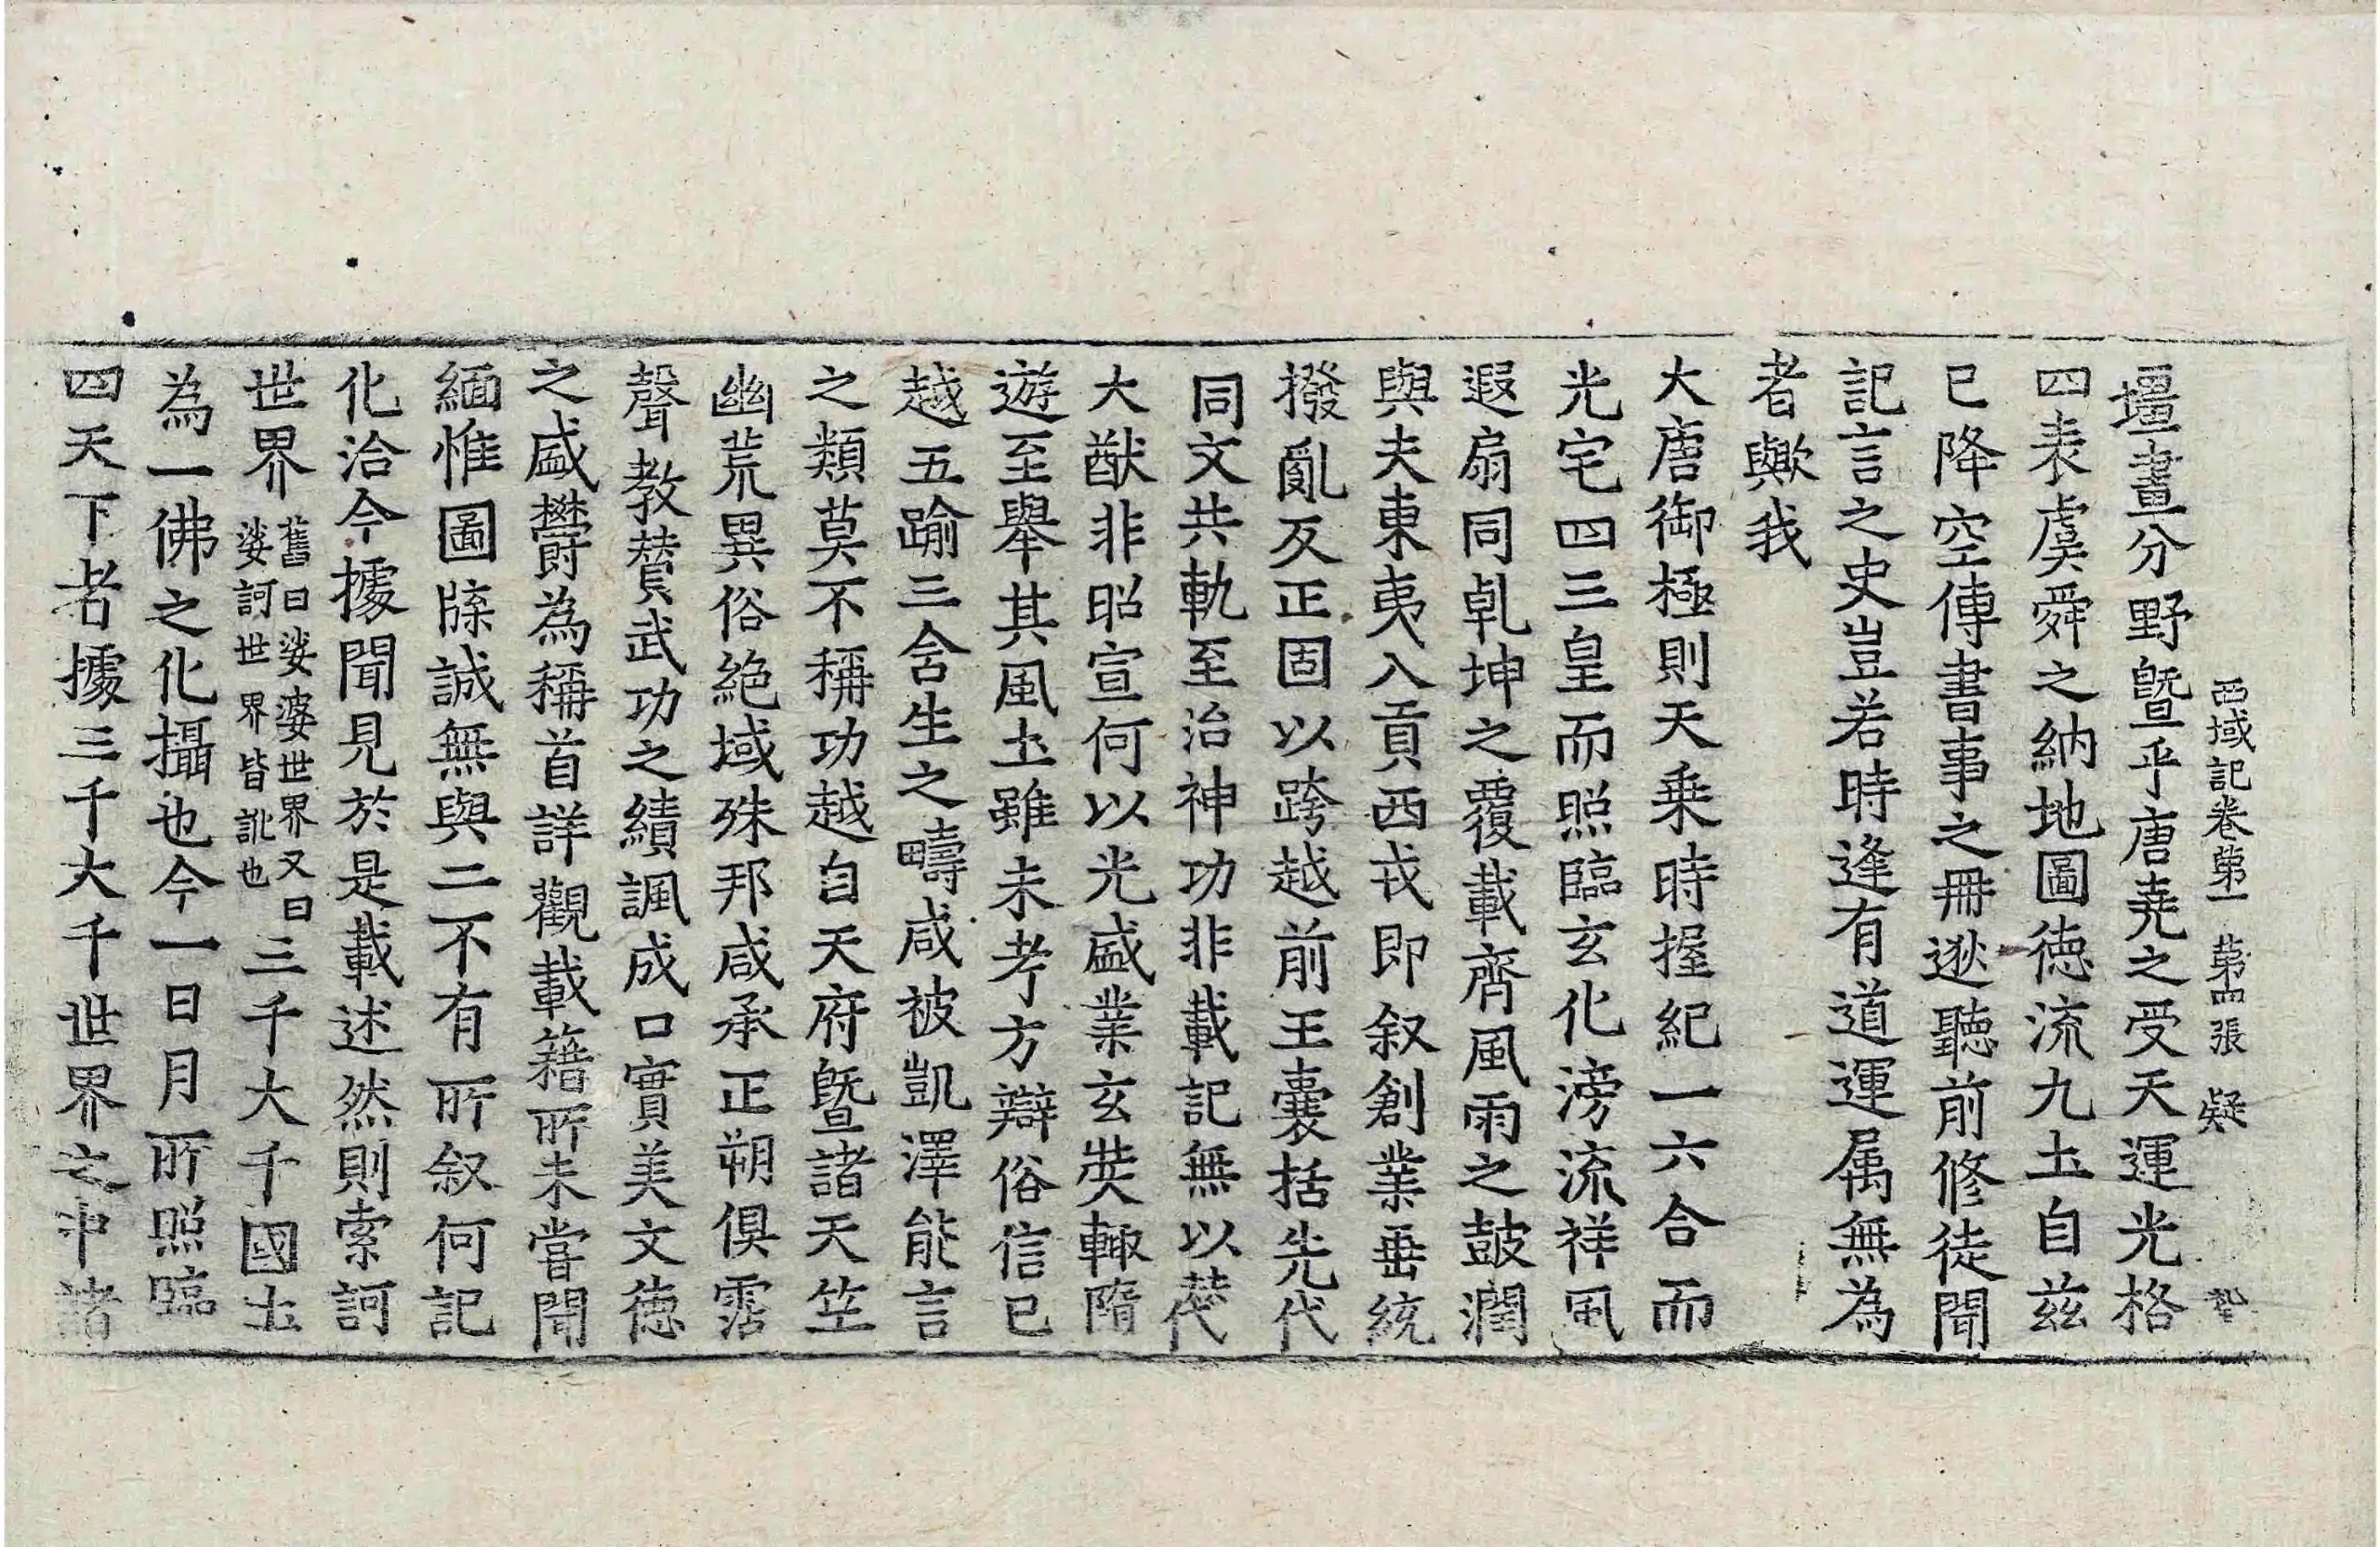 西域記卷第一 第四張 凝
壃畫分野曁乎唐堯之受天運光格
四表虞舜之納地圖德流九土自兹
已降空傳書事之冊逖聽前修徒聞
記言之史豈若時逢有道運属無為
者歟我
大唐御極則天乗時握紀一六合而
光宅四三皇而照臨玄化滂流祥風
遐扇同乹坤之覆載齊風雨之鼓潤
與夫東夷入貢西戎即叙創業垂統
撥亂反正固以跨越前王囊括先代
同文共軌至治神功非載記無以賛
大猷非昭宣何以光盛業玄奘輙隨
遊至舉其風土雖未考方辯俗信已
越五踰三含生之疇咸被凱澤能言
之類莫不稱功越自天府曁諸天竺
幽荒異俗絶域殊邦咸承正朔俱霑
聲教賛武功之績諷成口實美文德
之盛欝為稱首詳觀載籍所未嘗聞
緬惟圖牒誠無與二不有所叙何記
化洽今據聞見於是載述然則索訶
世界 舊曰娑婆世界又曰娑訶世界皆訛也 三千大千國土
為一佛之化攝也今一日月所照臨
四天下者據三千大千世界之中諸